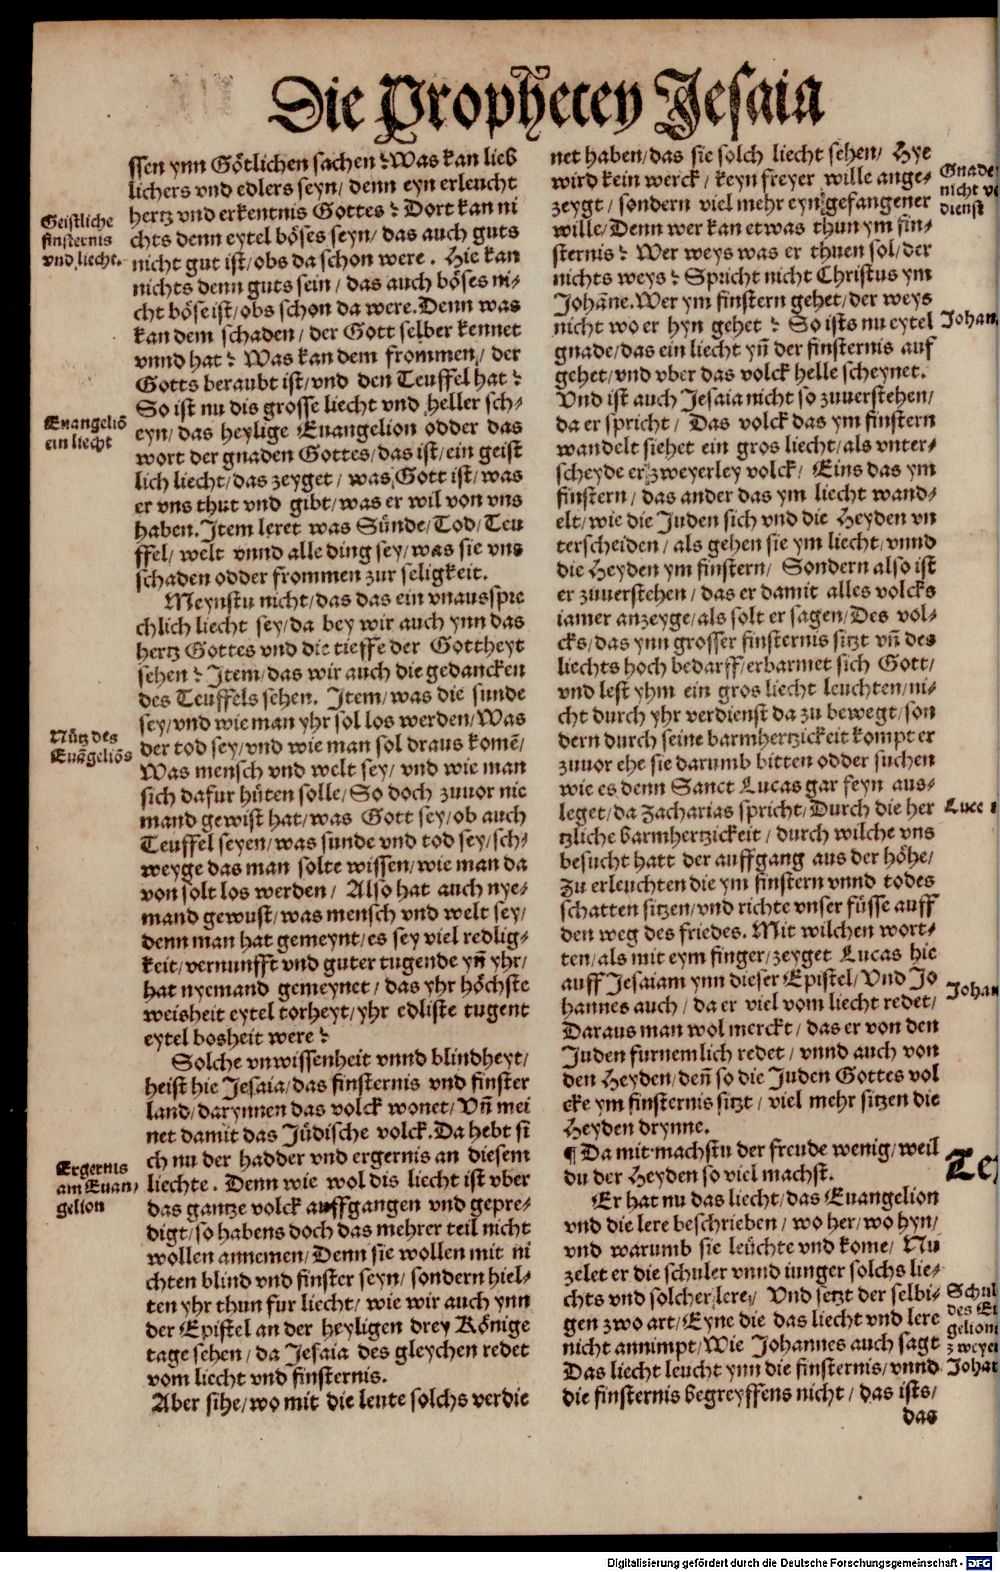 Die Prophecey Jesaia
ssen ynn Götlichen sachen? Was kan lieb
lichers vnd edlers seyn/ denn eyn erleucht
hertz vnd erkentnis Gottes? Dort kan ni
chts denn eytel böses seyn/ das auch guts
nicht gut ist/ obs da schon were. Hie kan
nichts denn guts sein/ das auch böses ni⸗
cht böse ist/ obs schon da were. Denn was
kan dem schaden/ der Gott selber kennet
vnnd hat? Was kan dem frommen/ der
Gotts beraubt ist/ vnd den Teuffel hat?
So ist nu dis grosse liecht vnd heller sch⸗
eyn/ das heylige Euangelion odder das
wort der gnaden Gottes/ das ist/ ein geist
lich liecht/ das zeyget/ was Gott ist/ was
er vns thut vnd gibt/ was er wil von vns
haben. Item leret was Sünde/ Tod/ Teu
ffel/ welt vnnd alle ding sey/ was sie vns
schaden odder frommen zur seligkeit.
Meynstu nicht/ das das ein vnausspre
chlich liecht sey/ da bey wir auch ynn das
hertz Gottes vnd die tieffe der Gottheyt
sehen? Item/ das wir auch die gedancken
des Teuffels sehen. Item/ was die sunde
sey/ vnd wie man yhr sol los werden/ Was
der tod sey/ vnd wie man sol draus komē/
Was mensch vnd welt sey/ vnd wie man
sich dafur hüten solle/ So doch zuuor nie
mand gewist hat/ was Gott sey/ ob auch
Teuffel seyen/ was sunde vnd tod sey/ sch⸗
weyge das man solte wissen/ wie man da
von solt los werden/ Also hat auch nye⸗
mand gewust/ was mensch vnd welt sey/
denn man hat gemeynt/ es sey viel redlig⸗
keit/ vernunfft vnd guter tugende yn̄ yhr/
hat nyemand gemeynet/ das yhr höchste
weisheit eytel torheyt/ yhr edliste tugent
eytel bosheit were?
Solche vnwissenheit vnnd blindheyt/
heist hie Jesaia/ das finsternis vnd finster
land/ darynnen das volck wonet/ Vn̄ mei
net damit das Jüdische volck. Da hebt si
ch nu der hadder vnd ergernis an diesem
liechte. Denn wie wol dis liecht ist vber
das gantze volck auffgangen vnd gepre⸗
digt/ so habens doch das mehrer teil nicht
wollen annemen/ Denn sie wollen mit ni
chten blind vnd finster seyn/ sondern hiel⸗
ten yhr thun fur liecht/ wie wir auch ynn
der Epistel an der heyligen drey Könige
tage sehen/ da Jesaia des gleychen redet
vom liecht vnd finsternis.
Aber sihe/ wo mit die leute solchs verdie
Geistliche
finsternis
vnd liecht.
Euangeliō
ein liecht
Nütz des
Euāgeliōs
Ergernis
am Euan⸗
gelion
net haben/ das sie solch liecht sehen/ Hye
wird kein werck/ keyn freyer wille ange⸗
zeygt/ sondern viel mehr eyn gefangener
wille/ Denn wer kan etwas thun ym fin⸗
sternis? Wer weys was er thuen sol/ der
nichts weys? Spricht nicht Christus ym
Johāne. Wer ym finstern gehet/ der weys
nicht wo er hyn gehet? So ists nu eytel
gnade/ das ein liecht yn̄ der finsternis auf
gehet/ vnd vber das volck helle scheynet.
Vnd ist auch Jesaia nicht so zuuerstehen/
da er spricht/ Das volck das ym finstern
wandelt siehet ein gros liecht/ als vnter⸗
scheyde er zweyerley volck/ Eins das ym
finstern/ das ander das ym liecht wand⸗
elt/ wie die Juden sich vnd die Heyden vn
terscheiden/ als gehen sie ym liecht/ vnnd
die Heyden ym finstern/ Sondern also ist
er zuuerstehen/ das er damit alles volcks
iamer anzeyge/ als solt er sagen/ Des vol⸗
cks/ das ynn grosser finsternis sitzt vn̄ des
liechts hoch bedarff/ erbarmet sich Gott/
vnd lest yhm ein gros liecht leuchten/ ni⸗
cht durch yhr verdienst da zu bewegt/ son
dern durch seine barmhertzickeit kompt er
zuuor ehe sie darumb bitten odder suchen
wie es denn Sanct Lucas gar feyn aus⸗
leget/ da Zacharias spricht/ Durch die her
tzliche barmhertzickeit/ durch wilche vns
besucht hatt der auffgang aus der höhe/
Zu erleuchten die ym finstern vnnd todes
schatten sitzen/ vnd richte vnser füsse auff
den weg des friedes. Mit wilchen wort⸗
ten/ als mit eym finger/ zeyget Lucas hie
auff Jesaiam ynn dieser Epistel/ Vnd Jo
hannes auch/ da er viel vom liecht redet/
Daraus man wol merckt/ das er von den
Juden furnemlich redet/ vnnd auch von
den Heyden/ den̄ so die Juden Gottes vol
cke ym finsternis sitzt/ viel mehr sitzen die
Heyden drynne.
¶ Da mit machstu der freude wenig/ weil
du der Heyden so viel machst.
Er hat nu das liecht/ das Euangelion
vnd die lere beschrieben/ wo her/ wo hyn/
vnd warumb sie leüchte vnd kome/ Nu
zelet er die schuler vnnd iunger solchs lie⸗
chts vnd solcher lere/ Vnd setzt der selbi⸗
gen zwo art/ Eyne die das liecht vnd lere
nicht annimpt/ Wie Johannes auch sagt
Das liecht leucht ynn die finsternis/ vnnd
die finsternis begreyffens nicht/ das ists/
das
Gnade
nicht v
dienst
Johan
Luce
Johan
Te
Schul
des E
gelion
zweye
Johan
Digitalisierung gefördert durch die Deutsche Forschungsgemeinschaft - DFG